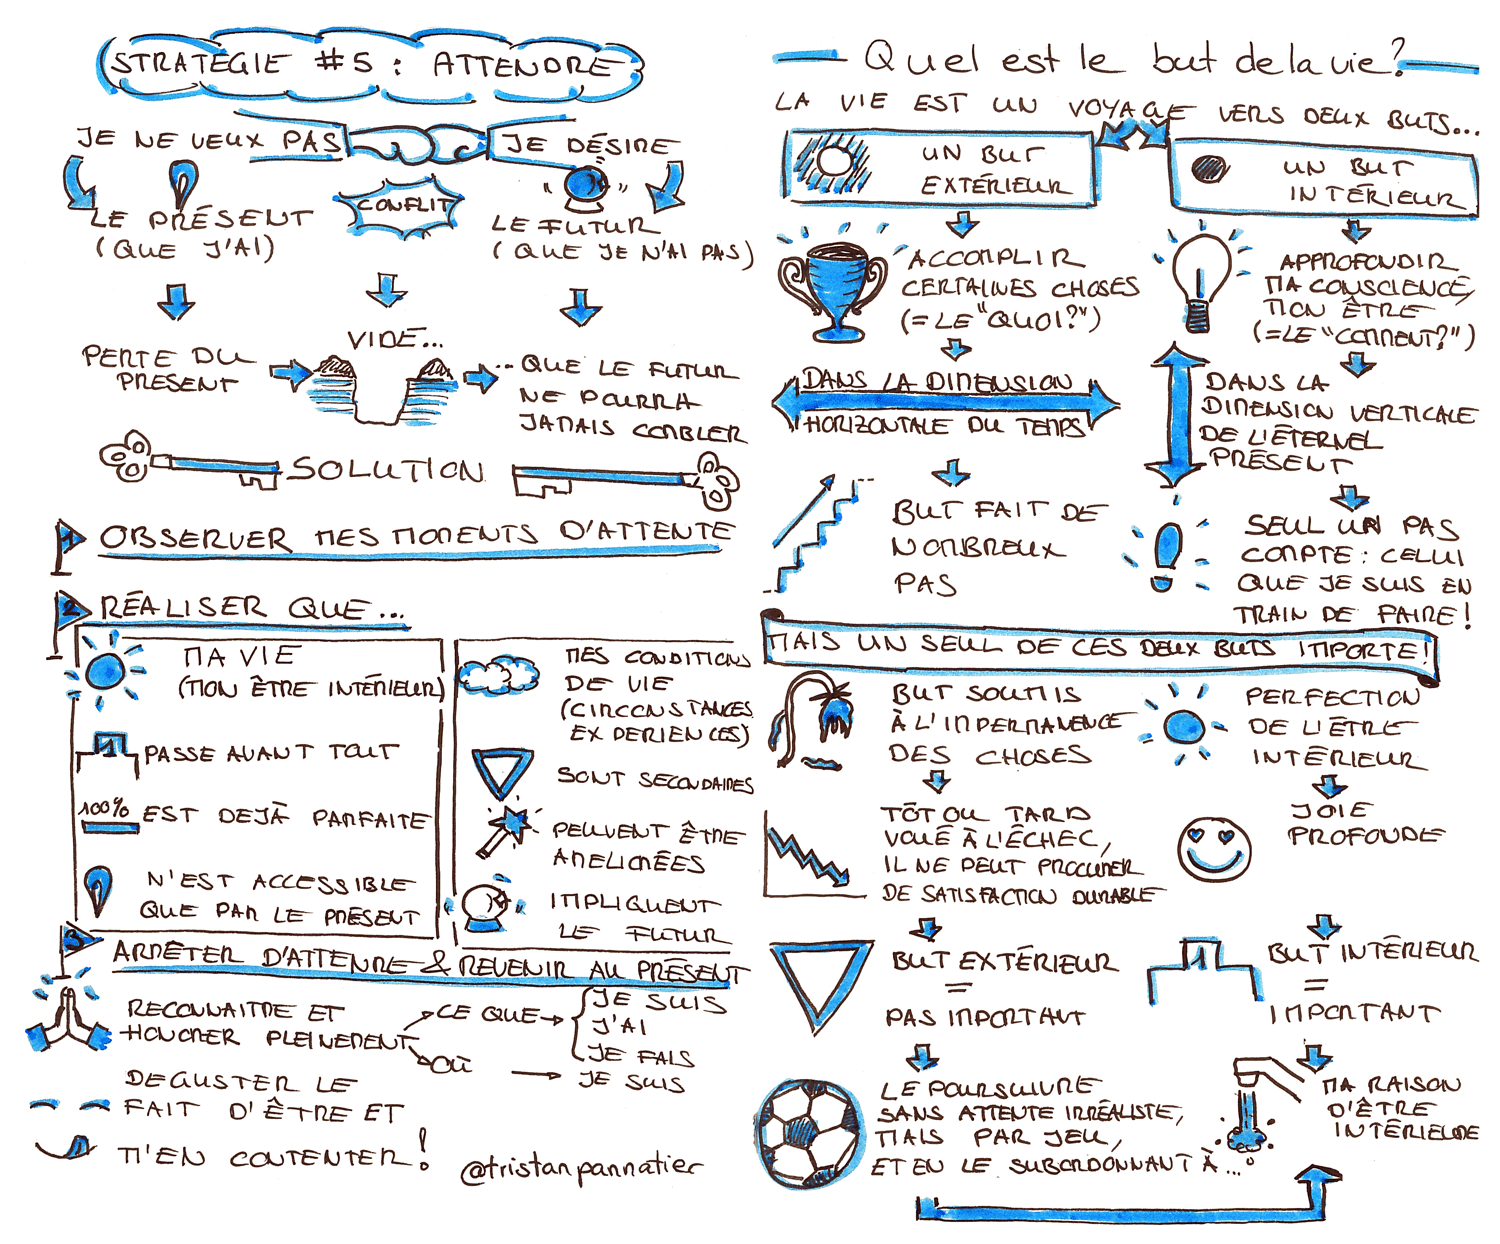 STRATÉGIE #5 : ATTENDRE
JE NE VEUX PAS
JE DÉSIRE
CONFLIT
LE PRÉSENT
(QUE J'AI)
LE FUTUR
(QUE JE N'AI PAS)
VIDE...
PERTE DU
PRESENT
... QUE LE FUTUR
NE POURRA
JAMAIS COMBLER
SOLUTION
1 OBSERVER MES MOMENTS D'ATTENTE
2 RÉALISER QUE...
MA VIE
(MON ÊTRE INTÉRIEUR)
1 PASSE AVANT TOUT
100% EST DEJÀ PARFAITE
N'EST ACCESSIBLE
QUE PAR LE PRÉSENT
MES CONDITIONS
DE VIE
(CIRCONSTANCES
EXPERIENCES)
SONT SECONDAIRES
PEUVENT ÊTRE
AMELIORÉES
IMPLIQUENT
LE FUTUR
3 ARRÊTER D'ATTENDRE & REVENIR AU PRÉSENT
RECONNAITRE ET
HONORER PLEINEMENT
CE QUE
JE SUIS
J'AI
JE FAIS
OÙ
JE SUIS
DEGUSTER LE
FAIT D'ÊTRE ET
M'EN CONTENTER!
@tristanpannatier
Quel est le but de la vie?
LA VIE EST UN VOYAGE VERS DEUX BUTS...
UN BUT
EXTÉRIEUR
UN BUT
INTÉRIEUR
ACCOMPLIR
CERTAINES CHOSES
(= LE "QUOI?")
APPROFONDIR
MA CONSCIENCE,
MON ÊTRE
(= LE "COMMENT?")
DANS LA DIMENSION
HORIZONTALE DU TEMPS
DANS LA
DIMENSION VERTICALE
DE L'ÉTERNEL
PRÉSENT
BUT FAIT DE
NOMBREUX
PAS
SEUL UN PAS
COMPTE : CELUI
QUE JE SUIS EN
TRAIN DE FAIRE!
MAIS UN SEUL DE CES DEUX BUTS IMPORTE!
BUT SOUMIS
À L'IMPERMANENCE
DES CHOSES
PERFECTION
DE L'ÊTRE
INTÉRIEUR
TÔT OU TARD
VOUÉ À L'ÉCHEC,
IL NE PEUT PROCURER
DE SATISFACTION DURABLE
JOIE
PROFONDE
BUT EXTÉRIEUR
=
PAS IMPORTANT
1
BUT INTÉRIEUR
=
IMPORTANT
LE POURSUIVRE
SANS ATTENTE IRRÉALISTE,
MAIS PAR JEU,
ET EN LE SUBORDONNANT À...
MA RAISON
D'ÊTRE
INTÉRIEURE